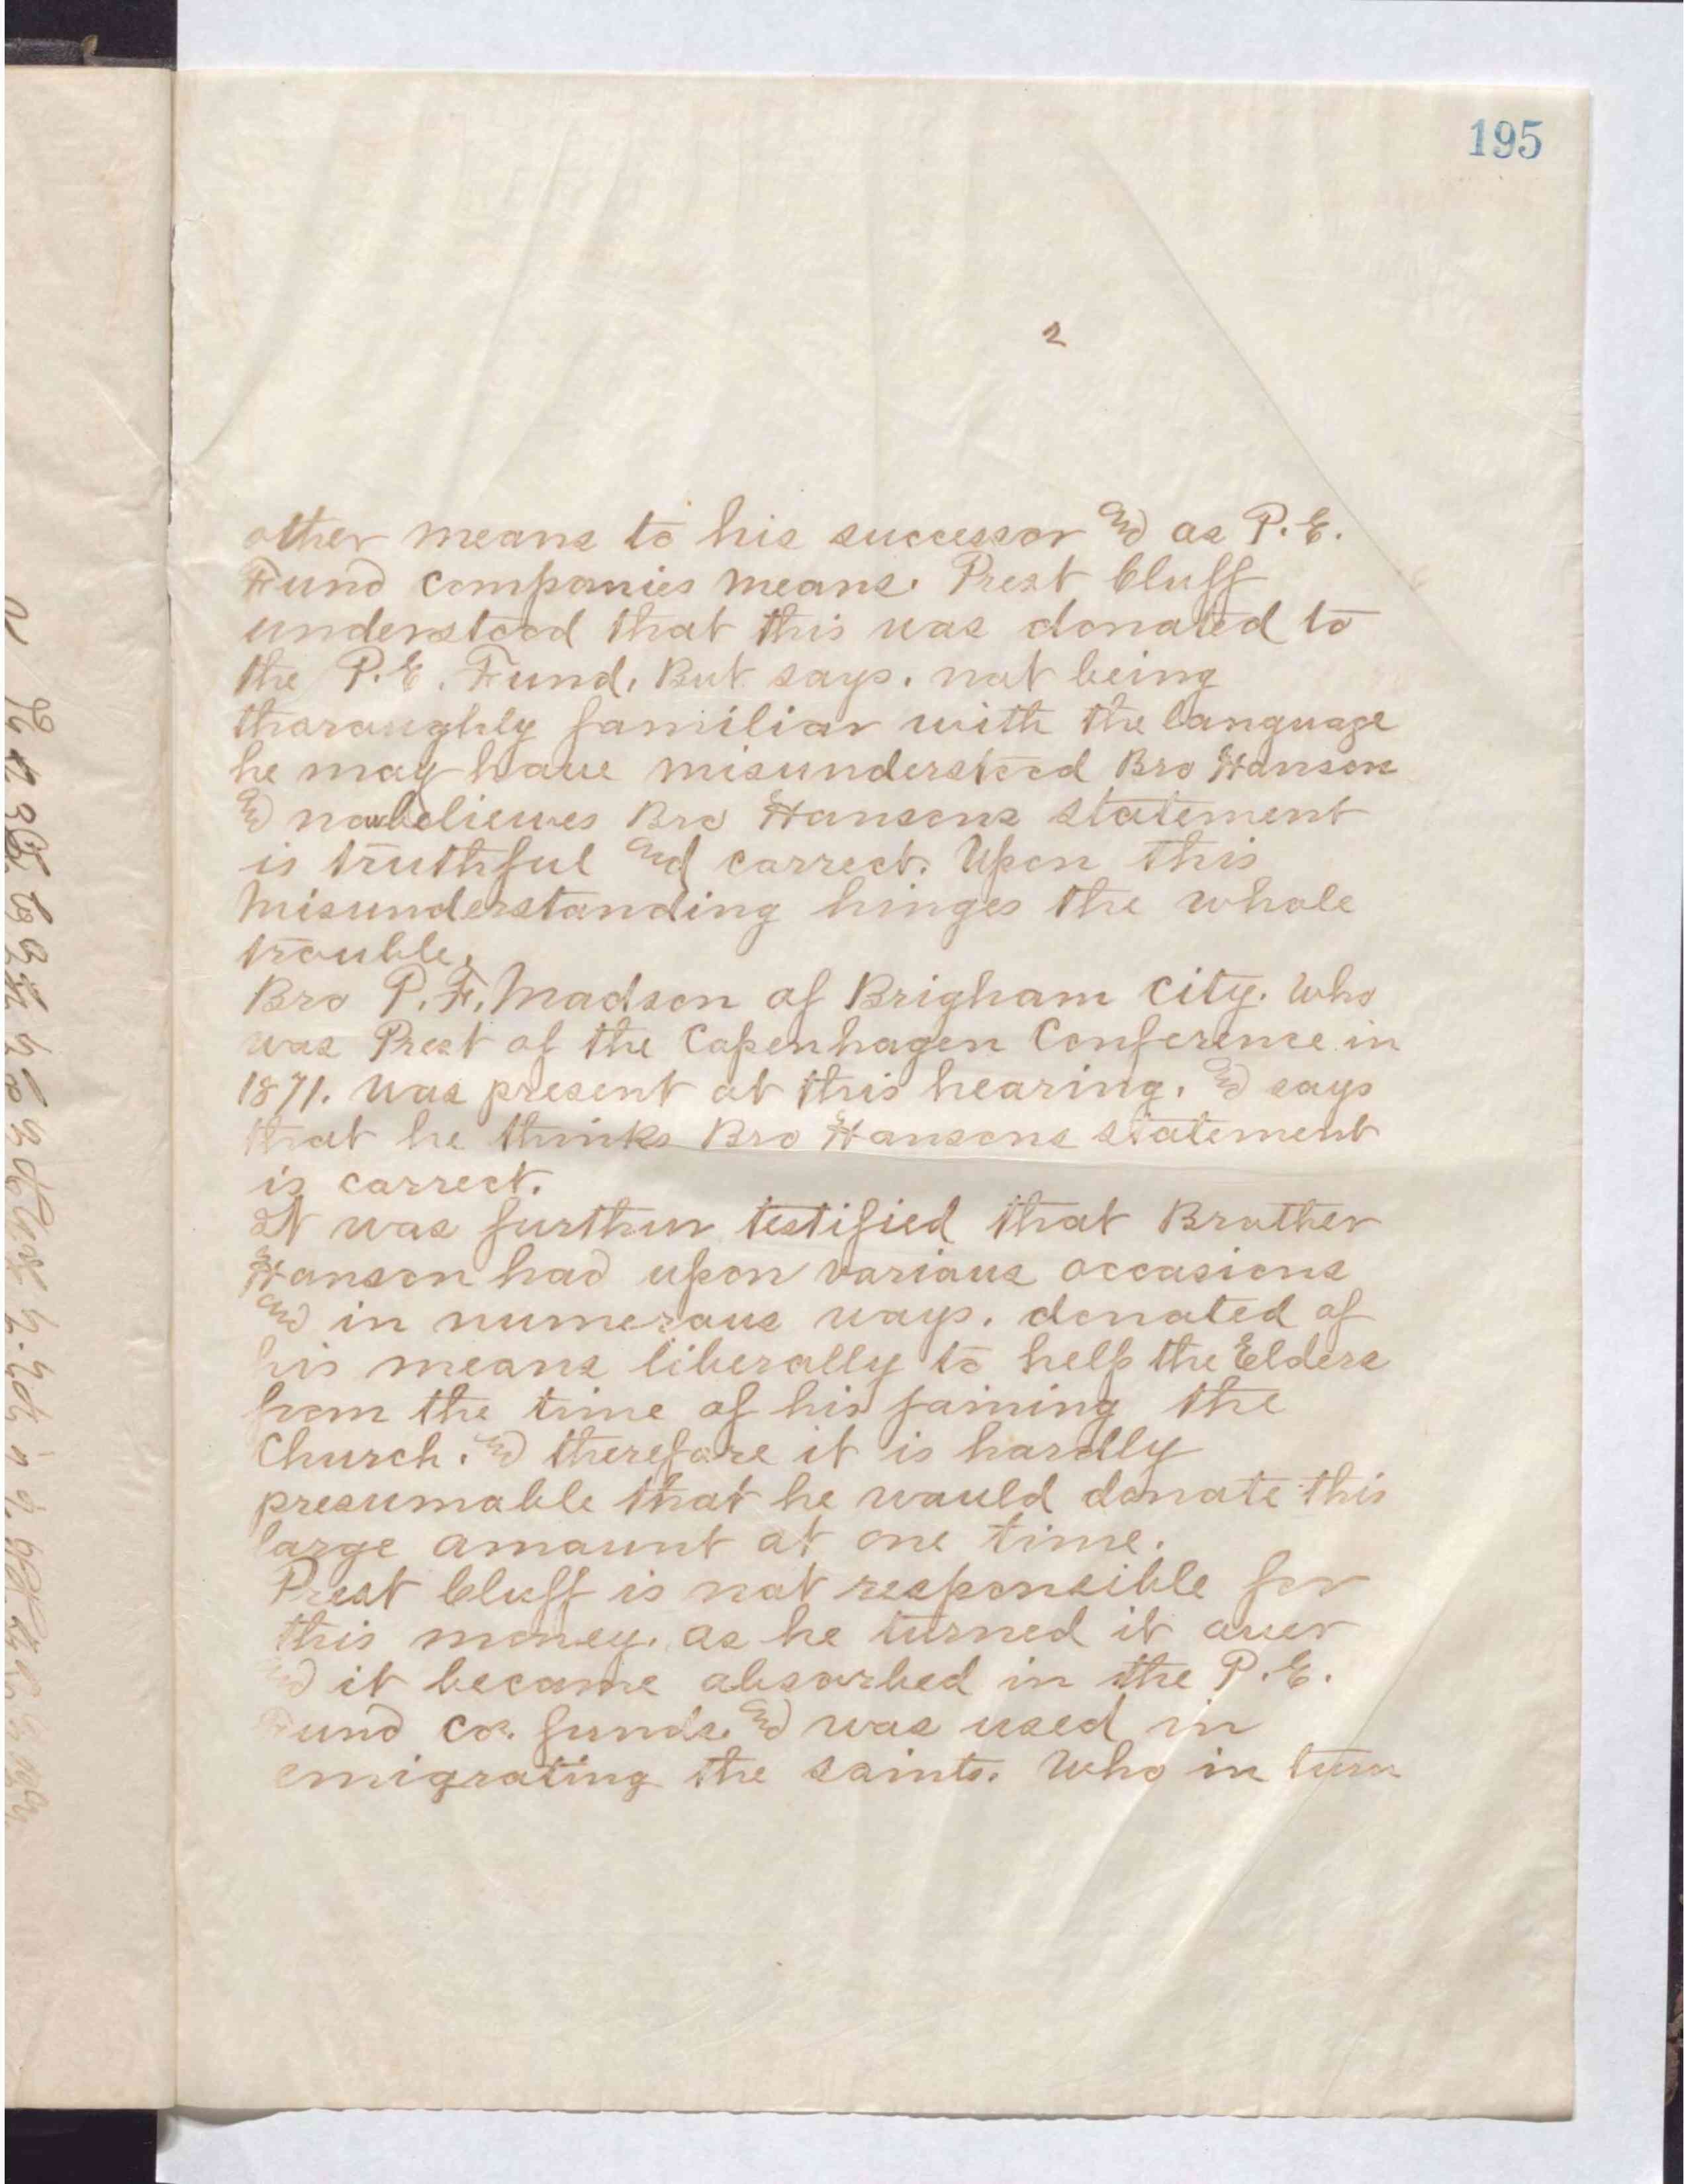 195
2
other means to his successor and as P. E.
Fund companies means. Prest Cluff
understood that this was donated to
the P. E. Fund, But says. not being
thoroughly familiar with the language
he may have misunderstood Bro Hanson
and now believes Bro Hansons statement
is truthful and correct. Upon this
Misunderstanding hinges the whole
trouble.
Bro P. F. Madson of Brigham City. Who
was Prest of the Copenhagen Conference in
1871. Was present at this hearing. and says
that he thinks Bro Hansons statement
is correct.
It was further testified that Brother
Hanson had upon various occasions
and in numerous ways. donated of
his means liberally to help the Elders
from the time of his joining the
Church. and therefore it is hardly
presumable that he would donate this
large amount at one time.
Prest Cluff is not responsible for
this money. as he turned it over
and it became absorbed in the P. E.
Fund Co. funds. and was used in
emigrating the saints. Who in turn